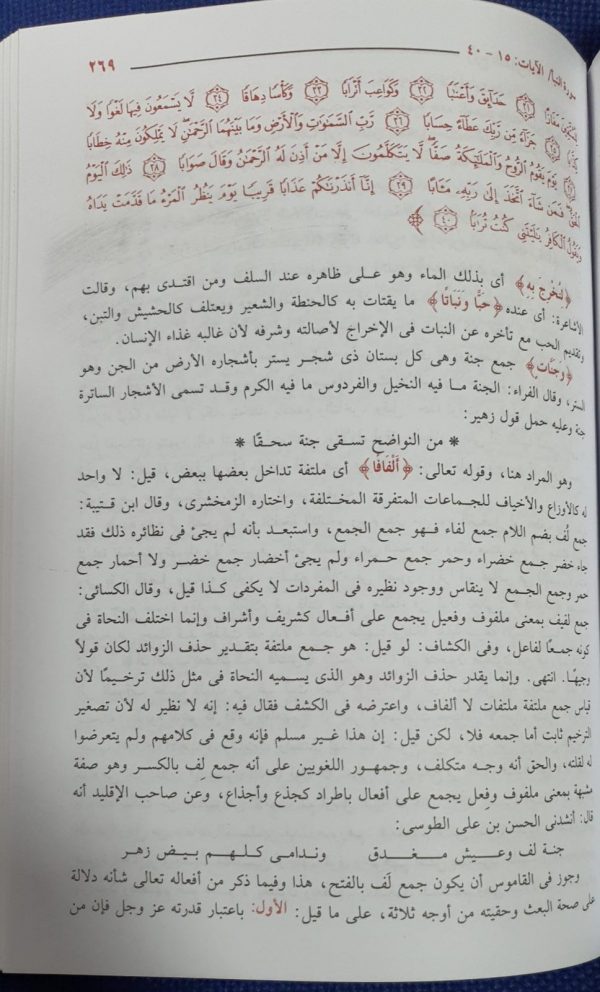 سورة النبأ/ الآيات: ١٥ - ٤٠ ٢٦٩
﴿٣١﴾ حَدَآئِقَ وَأَعْنَٰبًا ﴿٣٢﴾ وَكَوَاعِبَ أَتْرَابًا ﴿٣٣﴾ وَكَأْسًا دِهَاقًا ﴿٣٤﴾ لَّا يَسْمَعُونَ فِيهَا لَغْوًا وَلَا
﴿٣٥﴾ جَزَآءً مِّن رَّبِّكَ عَطَآءً حِسَابًا ﴿٣٦﴾ رَّبِّ السَّمَٰوَٰتِ وَالْأَرْضِ وَمَا بَيْنَهُمَا الرَّحْمَٰنِ لَا يَمْلِكُونَ مِنْهُ خِطَابًا
﴿٣٧﴾ يَوْمَ يَقُومُ الرُّوحُ وَالْمَلَٰٓئِكَةُ صَفًّا لَّا يَتَكَلَّمُونَ إِلَّا مَنْ أَذِنَ لَهُ الرَّحْمَٰنُ وَقَالَ صَوَابًا ﴿٣٨﴾ ذَٰلِكَ الْيَوْمُ
الْحَقُّ فَمَن شَآءَ اتَّخَذَ إِلَىٰ رَبِّهِۦ مَـَٔابًا ﴿٣٩﴾ إِنَّآ أَنذَرْنَٰكُمْ عَذَابًا قَرِيبًا يَوْمَ يَنظُرُ الْمَرْءُ مَا قَدَّمَتْ يَدَاهُ
وَيَقُولُ الْكَافِرُ يَٰلَيْتَنِى كُنتُ تُرَٰبًۢا ﴿٤٠﴾
﴿لِنُخْرِجَ بِهِ﴾ أى بذلك الماء وهو على ظاهره عند السلف ومن اقتدى بهم، وقالت
الأشاعرة: أى عنده ﴿حَبًّا وَنَبَاتًا﴾ ما يقتات به كالحنطة والشعير ويعتلف كالحشيش والتبن،
وتقديم الحب مع تأخره عن النبات فى الإخراج لأصالته وشرفه لأن غالبه غذاء الإنسان.
﴿وَجَنَّاتٍ﴾ جمع جنة وهى كل بستان ذى شجر يستر بأشجاره الأرض من الجن وهو
الستر، وقال الفراء: الجنة ما فيه النخيل والفردوس ما فيه الكرم وقد تسمى الأشجار الساترة
جنة وعليه حمل قول زهير:
* من النواضح تسقى جنة سحقًا *
وهو المراد هنا، وقوله تعالى: ﴿أَلْفَافًا﴾ أى ملتفة تداخل بعضها ببعض، قيل: لا واحد
له كالأوزاع والأخياف للجماعات المتفرقة المختلفة، واختاره الزمخشرى، وقال ابن قتيبة:
جمع لُف بضم اللام جمع لفاء فهو جمع الجمع، واستبعد بأنه لم يجئ فى نظائره ذلك فقد
جاء خضر جمع خضراء وحمر جمع حمراء ولم يجئ أخضار جمع خضر ولا أحمار جمع
حمر وجمع الجمع لا ينقاس ووجود نظيره فى المفردات لا يكفى كذا قيل، وقال الكسائى:
جمع لفيف بمعنى ملفوف وفعيل يجمع على أفعال كشريف وأشراف وإنما اختلف النحاة فى
كونه جمعًا لفاعل، وفى الكشاف: لو قيل: هو جمع ملتفة بتقدير حذف الزوائد لكان قولاً
وجيهًا. انتهى. وإنما يقدر حذف الزوائد وهو الذى يسميه النحاة فى مثل ذلك ترخيمًا لأن
قياس جمع ملتفة ملتفات لا ألفاف، واعترضه فى الكشف فقال فيه: إنه لا نظير له لأن تصغير
الترخيم ثابت أما جمعه فلا، لكن قيل: إن هذا غير مسلم فإنه وقع فى كلامهم ولم يتعرضوا
له لقلته، والحق أنه وجه متكلف، وجمهور اللغويين على أنه جمع لِف بالكسر وهو صفة
مشبهة بمعنى ملفوف وفِعل يجمع على أفعال باطراد كجذع وأجذاع، وعن صاحب الإقليد أنه
قال: أنشدنى الحسن بن على الطوسى:
جنة لف وعيش مغدق وندامى كلهم بيض زهر
وجوز فى القاموس أن يكون جمع لَف بالفتح، هذا وفيما ذكر من أفعاله تعالى شأنه دلالة
على صحة البعث وحقيته من أوجه ثلاثة، على ما قيل: الأول: باعتبار قدرته عز وجل فإن من